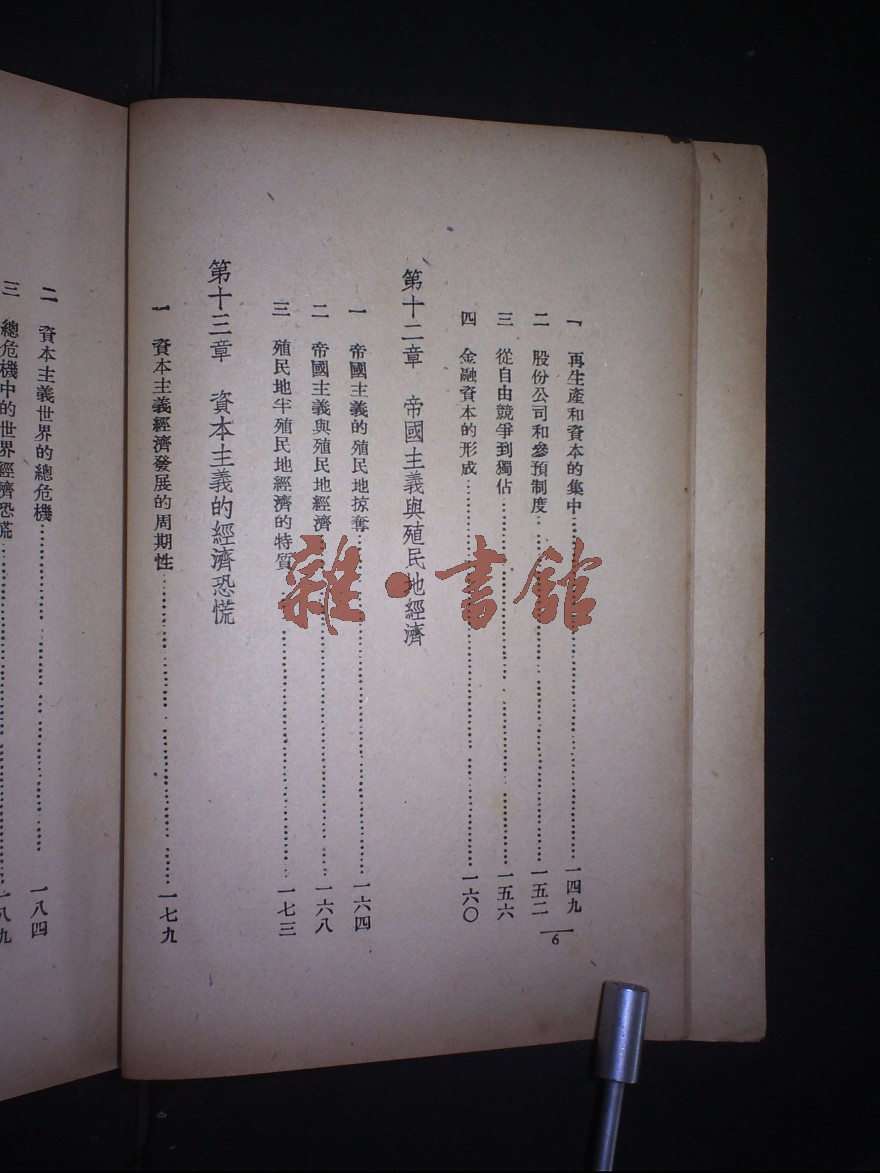 一 再生產和資本的集中……一四九
二 股份公司和參預制度……一五二
三 從自由競爭到獨佔……一五六
四 金融資本的形成……一六〇
第十二章 帝國主義與殖民地經濟
一 帝國主義的殖民地掠奪……一六四
二 帝國主義與殖民地經濟……一六八
三 殖民地半殖民地經濟的特質……一七三
第十三章 資本主義的經濟恐慌
一 資本主義經濟發展的周期性……一七九
6
二 資本主義世界的總危機……一八四
三 總危機中的世界經濟恐慌……一八九
雜·書館